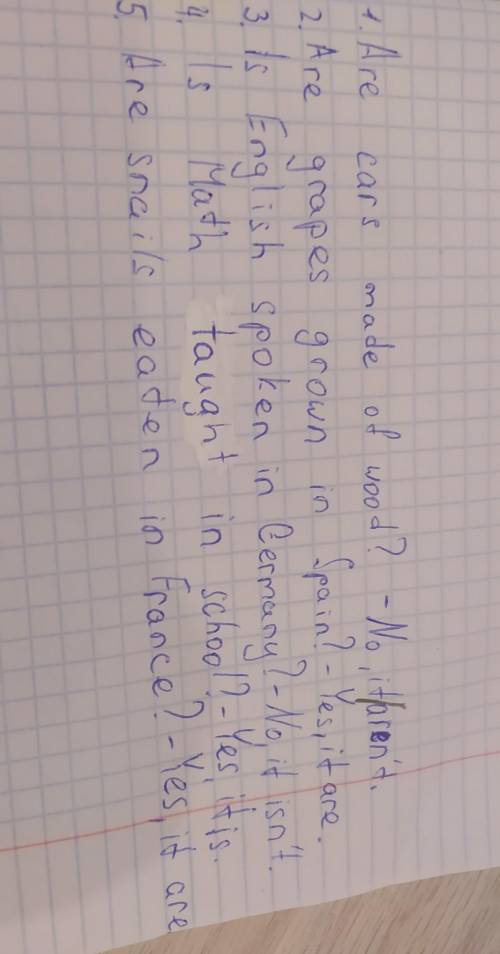 1. Are cars made of wood? - No, it aren't.
2. Are grapes grown in Spain? - Yes, it are.
3. Is English spoken in Germany? - No, it isn't.
4. Is Math taught in school? - Yes, it is.
5. Are snails eaten in France? - Yes, it are